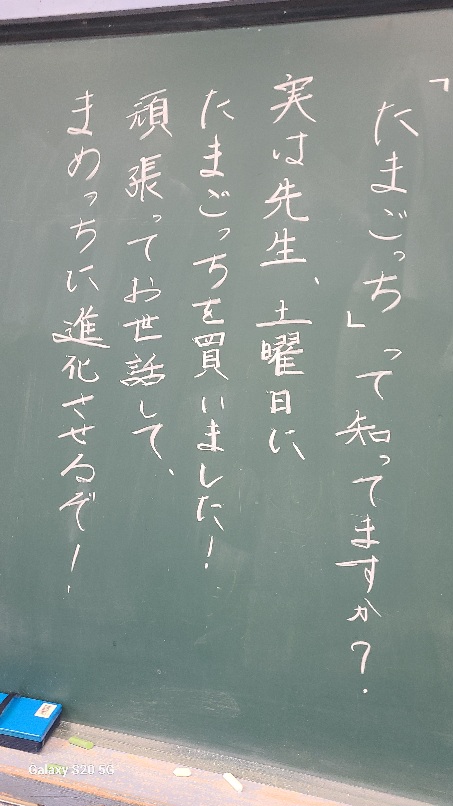 「たまごっち」って知ってますか？
実は先生、土曜日に
たまごっちを買いました！
頑張ってお世話して、
まめっちに進化させるぞ！
Galaxy S20 5G